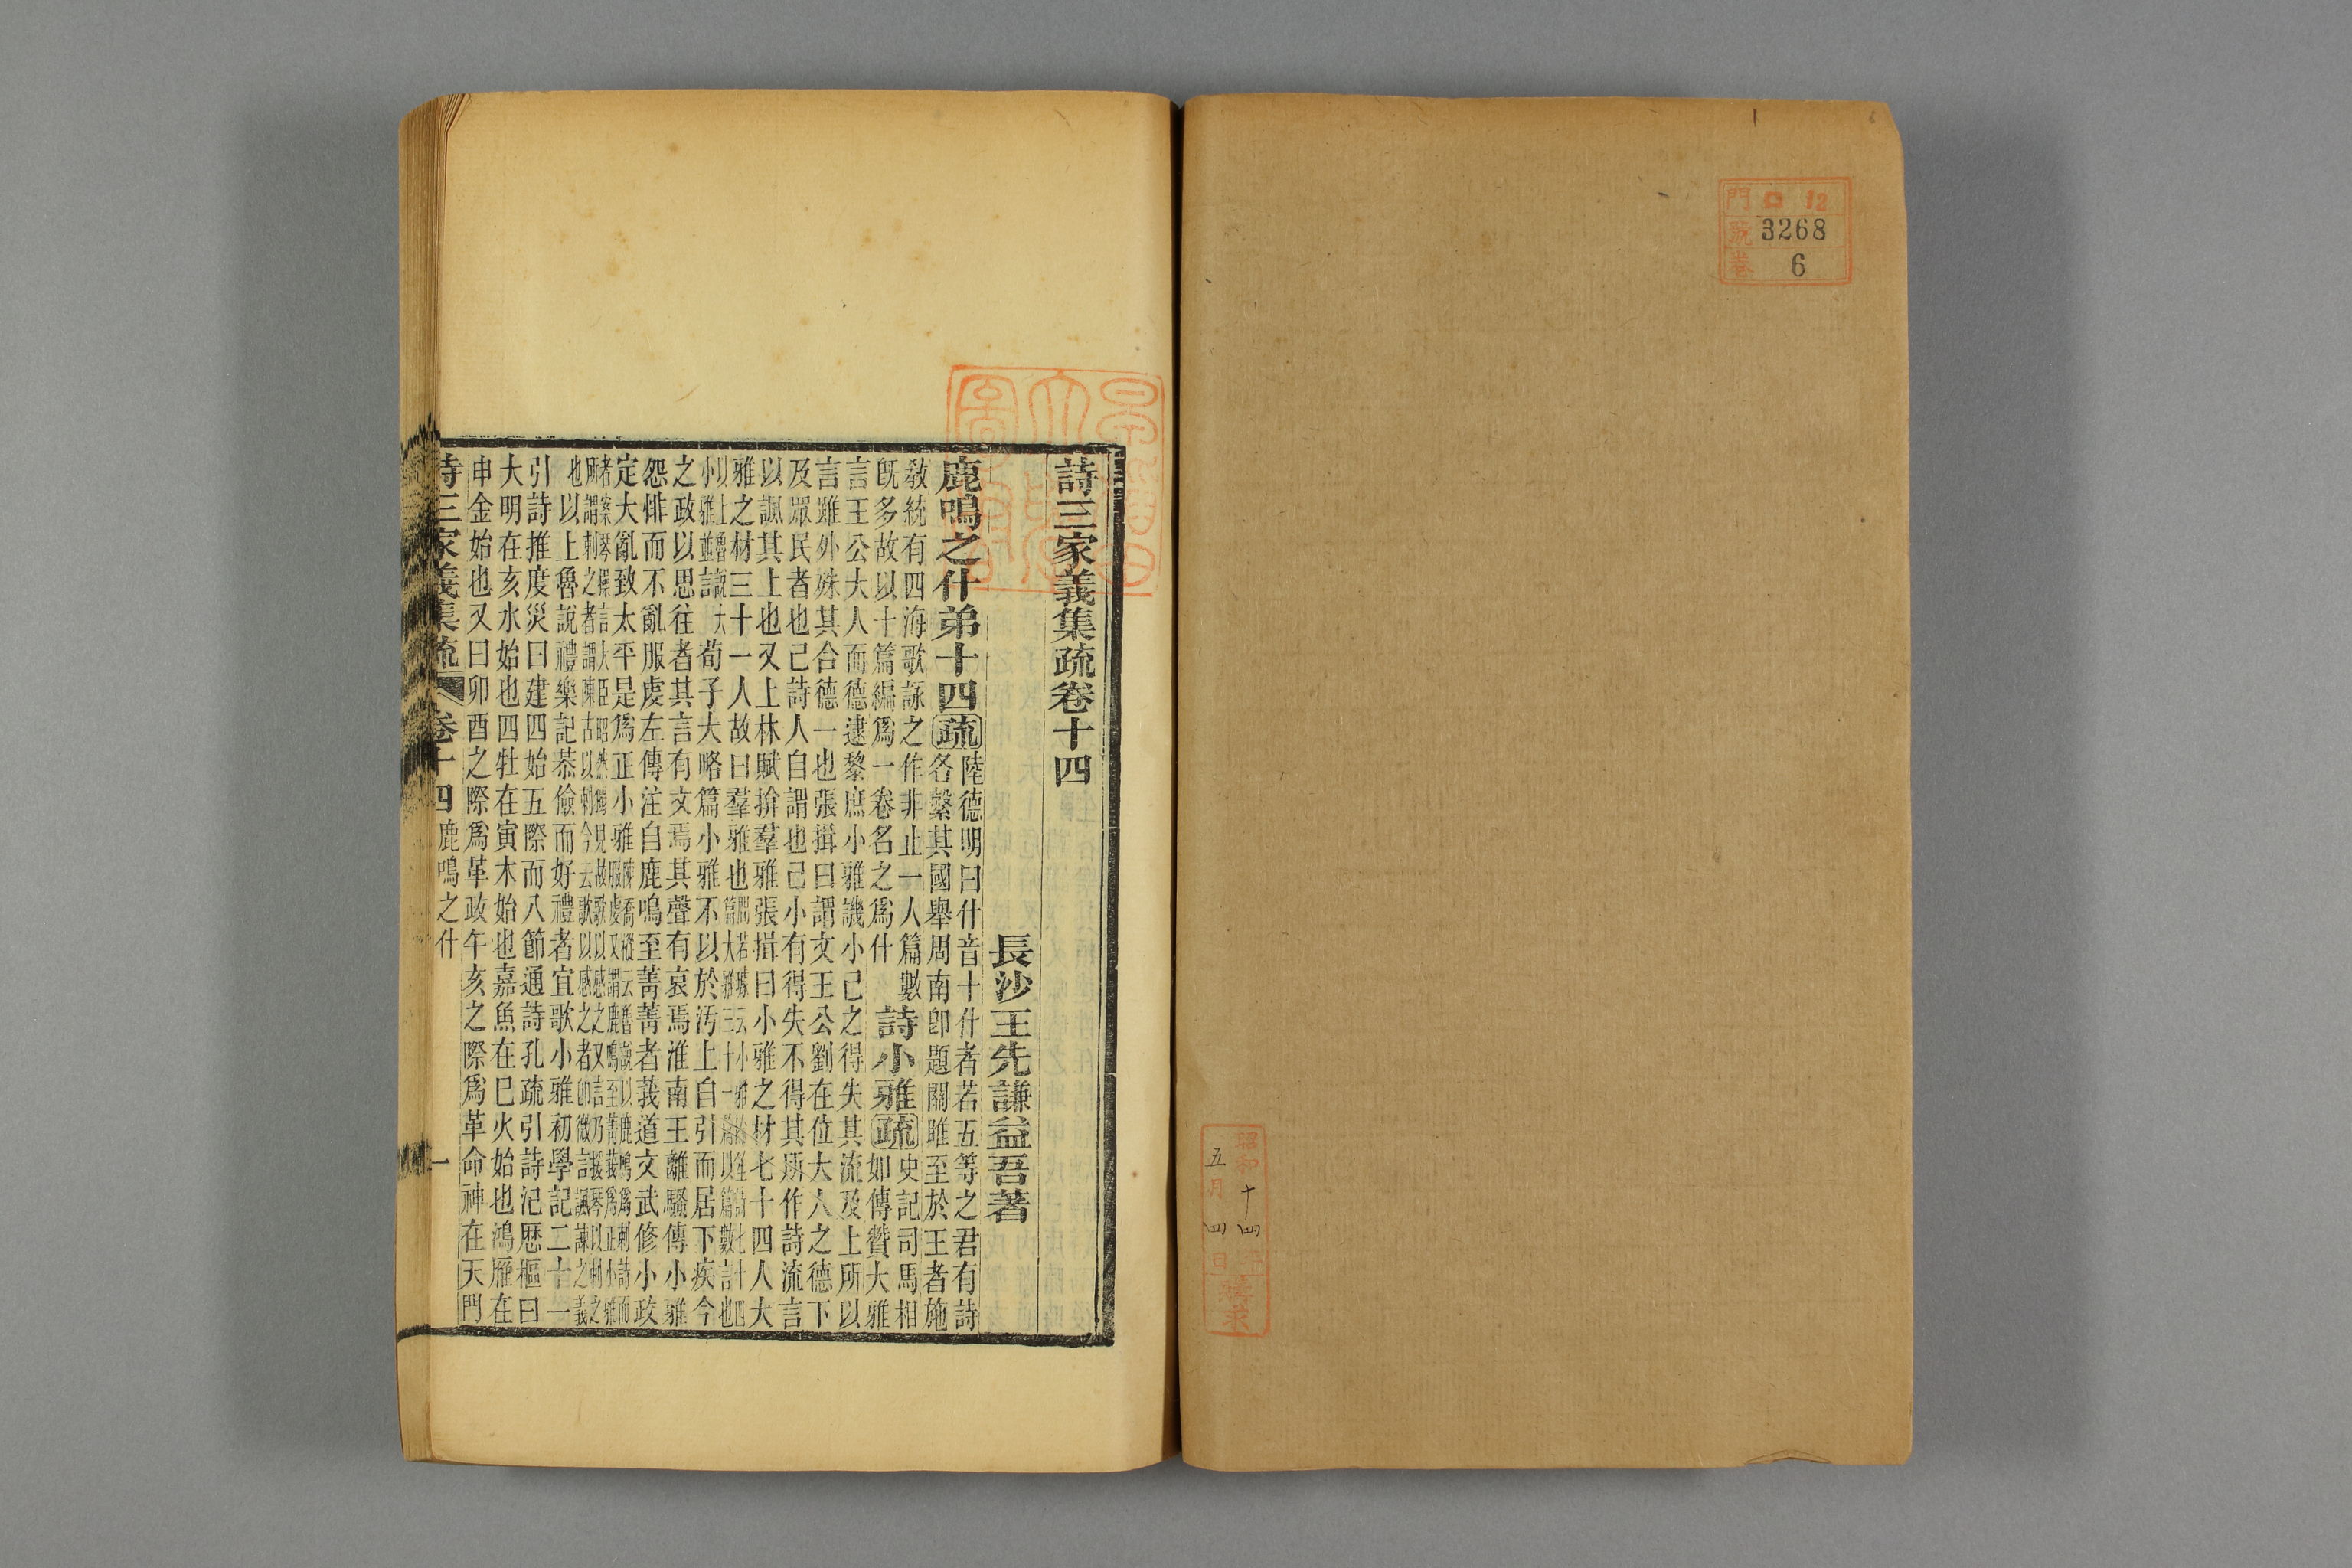 門 ロ 12
號 3268
卷 6
昭和十四年
五月四日
購求
詩三家義集疏卷十四
長沙王先謙益吾著
鹿鳴之什弟十四疏陸德明曰什音十什者若五等之君有詩
各繫其國舉周南卽題關雎至於王者施
敎統有四海歌詠之作非止一人篇數
旣多故以十篇編爲一卷名之爲什
詩小雅疏史記司馬相
如傳贊大雅
言王公大人而德逮黎庶小雅譏小己之得失其流及上所以
言雖外殊其合德一也張揖曰謂文王公劉在位大人之德下
及眾民者也己詩人自謂也己小有得失不得其所作詩流言
以諷其上也又上林賦揜羣雅張揖曰小雅之材七十四人大
雅之材三十一人故曰羣雅也
小雅並計大荀子大略篇小雅不以於汚上自引而居下疾今
之政以思往者其言有文焉其聲有哀焉淮南王離騷傳小雅
怨悱而不亂服虔左傳注自鹿鳴至菁菁者莪道文武修小政
定大亂致太平是爲正小雅
者案琴操言大臣昭然獨見故歌以感之又言乃援琴以刺之
所謂刺之者謂陳古以刺今云歌以感之者卽微言諷諫之義
也以上魯說禮樂記恭儉而好禮者宜歌小雅初學記二十一
引詩推度災曰建四始五際而八節通詩孔疏引詩汜厤樞曰
大明在亥水始也四牡在寅木始也嘉魚在巳火始也鴻雁在
申金始也又曰卯酉之際爲革政午亥之際爲革命神在天門
詩三家義集疏 卷十四 鹿鳴之什 一